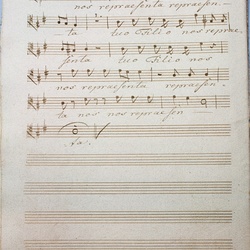 nos repraesenta repraesen-
ta tuo Filio nos reprae
senta tuo Filio nos
nos repraesenta repraesen.
ta nos nos repraesen
ta.